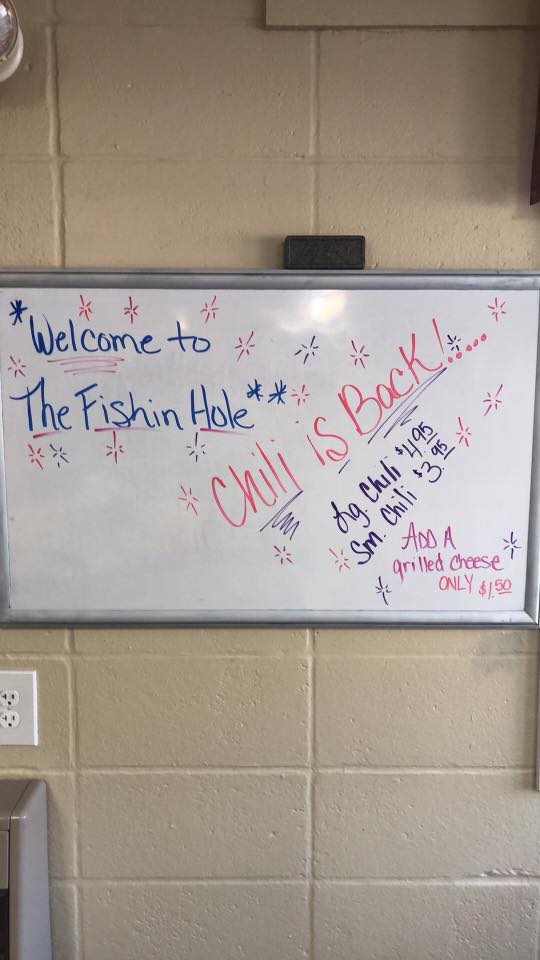 *Welcome to
The Fishin Hole**
Chili is Back!.....
Lg. Chili $4.95
Sm. Chili $3.95
ADD A
grilled cheese
ONLY $1.50